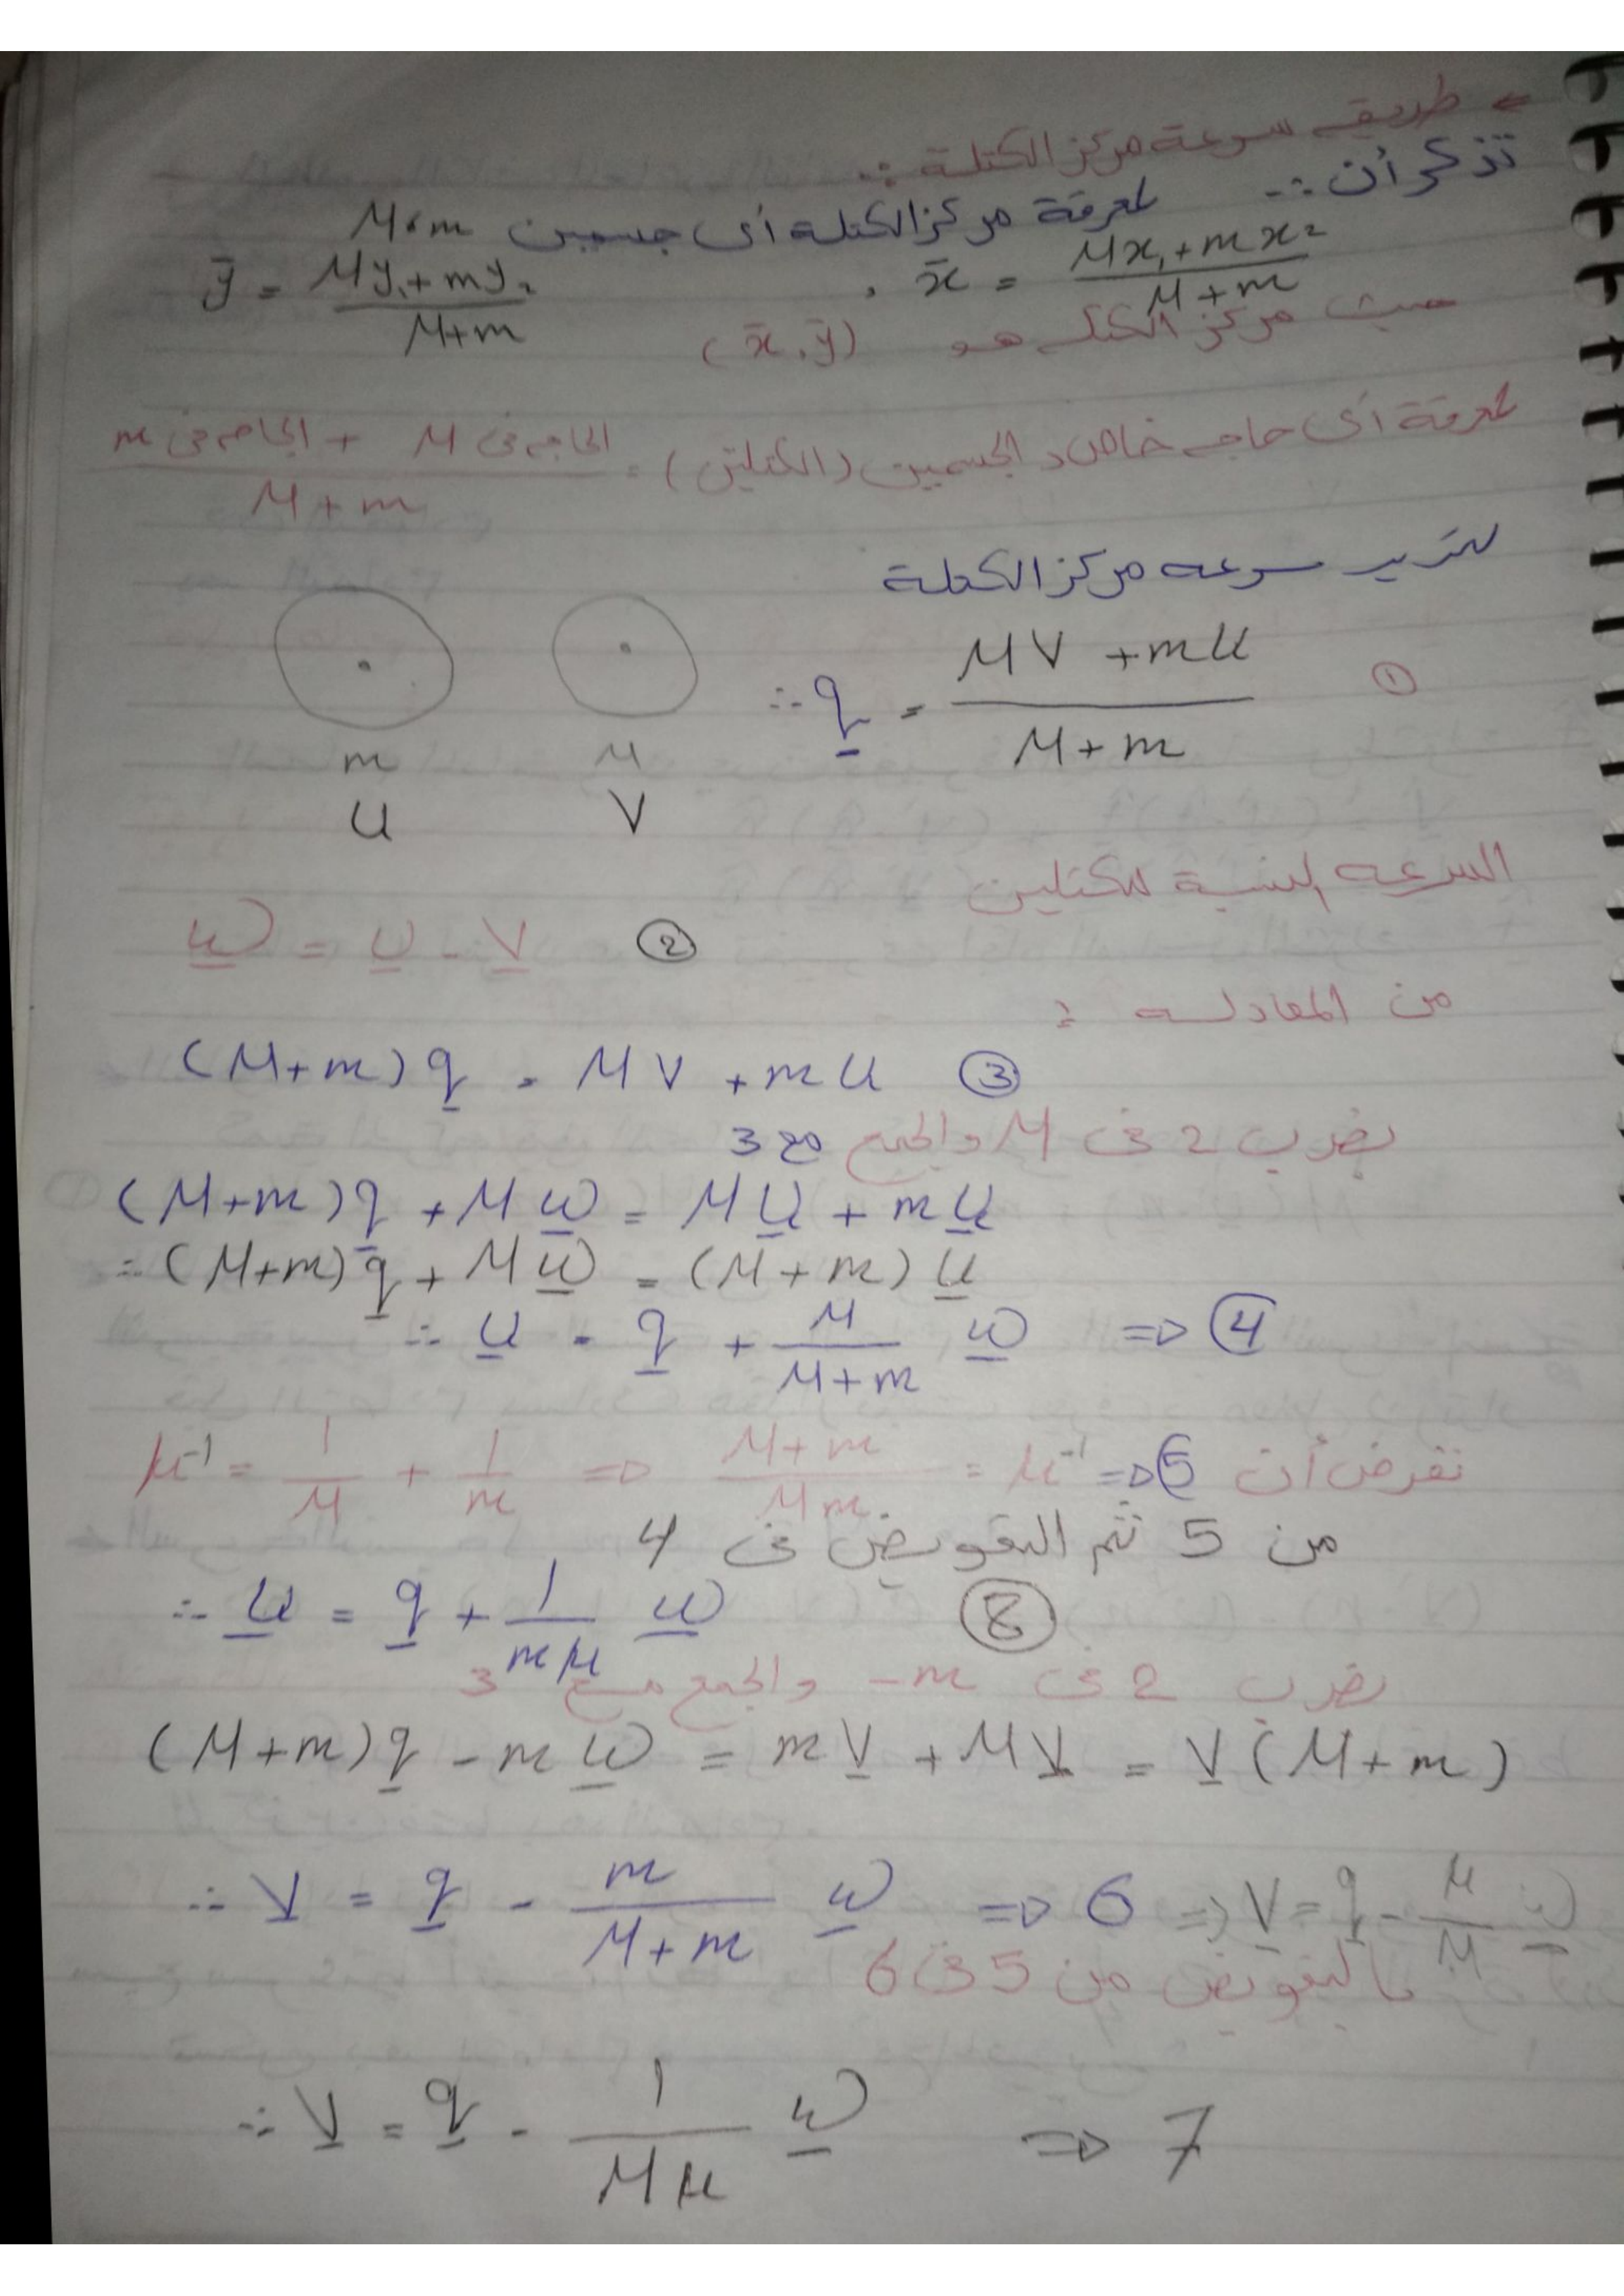 ⇐ طريقه سرعة مركز الكتلة :-
تذكر أن :- لمعرفة مركز الكتله أى جسمين M , m
x̄ = (Mx₁ + mx₂) / (M + m) , ȳ = (My₁ + my₂) / (M + m)
حيث مركز الكتله هو (x̄ , ȳ)
لمعرفة أى حاجه خاص الجسمين (الكتلتين) = (الحاجه فى M + الحاجه فى m) / (M + m)
سرعه مركز الكتلة
∴ q = (MV + mU) / (M + m) ①
m M
U V
السرعه النسبية للكتلين
w = U - V ②
من المعادله :
(M+m) q = MV + mU ③
بضرب 2 فى M والجمع مع 3
(M+m) q + M w = M U + m U
= (M+m) q + M w = (M+m) U
∴ U = q + M/(M+m) w ⇒ ④
نفرض أن μ⁻¹ = 1/M + 1/m ⇒ (M+m)/(Mm) = μ⁻¹ ⇒ ⑤
من 5 ثم التعويض فى 4
∴ U = q + 1/(mμ) w ⑧
بضرب 2 فى -m والجمع مع 3
(M+m) q - m w = m V + M V = V (M+m)
∴ V = q - m/(M+m) w ⇒ 6 ⇒ V = q - μ/M w
بالتعويض من 5 فى 6
∴ V = q - 1/(Mμ) w ⇒ 7